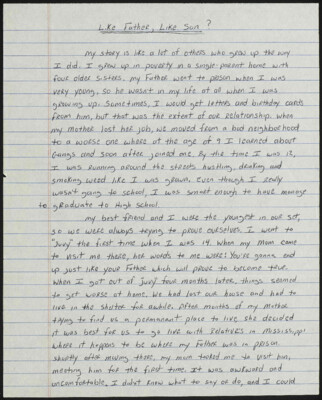 Like Father, Like Son ?
my story is like a lot of others who grew up the way
I did. I grew up in poverty in a single-parent home with
four older sisters. my Father went to prison when I was
very young, so he wasn't in my life at all when I was
growing up. Sometimes, I would get letters and birthday cards
from him, but that was the extent of our relationship. when
my mother lost her job, we moved from a bad neighborhood
to a worse one where at the age of 9 I learned about
Gangs and soon after joined one. By the time I was 13,
I was running around the streets hustling, drinking and
smoking weed like I was grown. Even though I
wasn't going to school, I was smart enough to have manage
to graduate to High School.
my best friend and I were the youngest in our set,
so we were always trying to prove ourselves. I went to
"Juvy" the first time when I was 14. when my mom came
to visit me there, her words to me were: You're gonna end
up just like your Father which will prove to become true.
when I got out of juvy four months later things seemed
to get worse at home. We had lost our house and had to
live in the shelter for awhile. After months of my mother
trying to find us a permanent place to live she decided
it was best for us to go live with relatives in Mississippi
where it happens to be where my Father was in prison.
shortly after moving there, my mom tooked me to visit him,
meeting him for the first time. It was awkward and
uncomfortable. I didn't know what to say or do, and I could